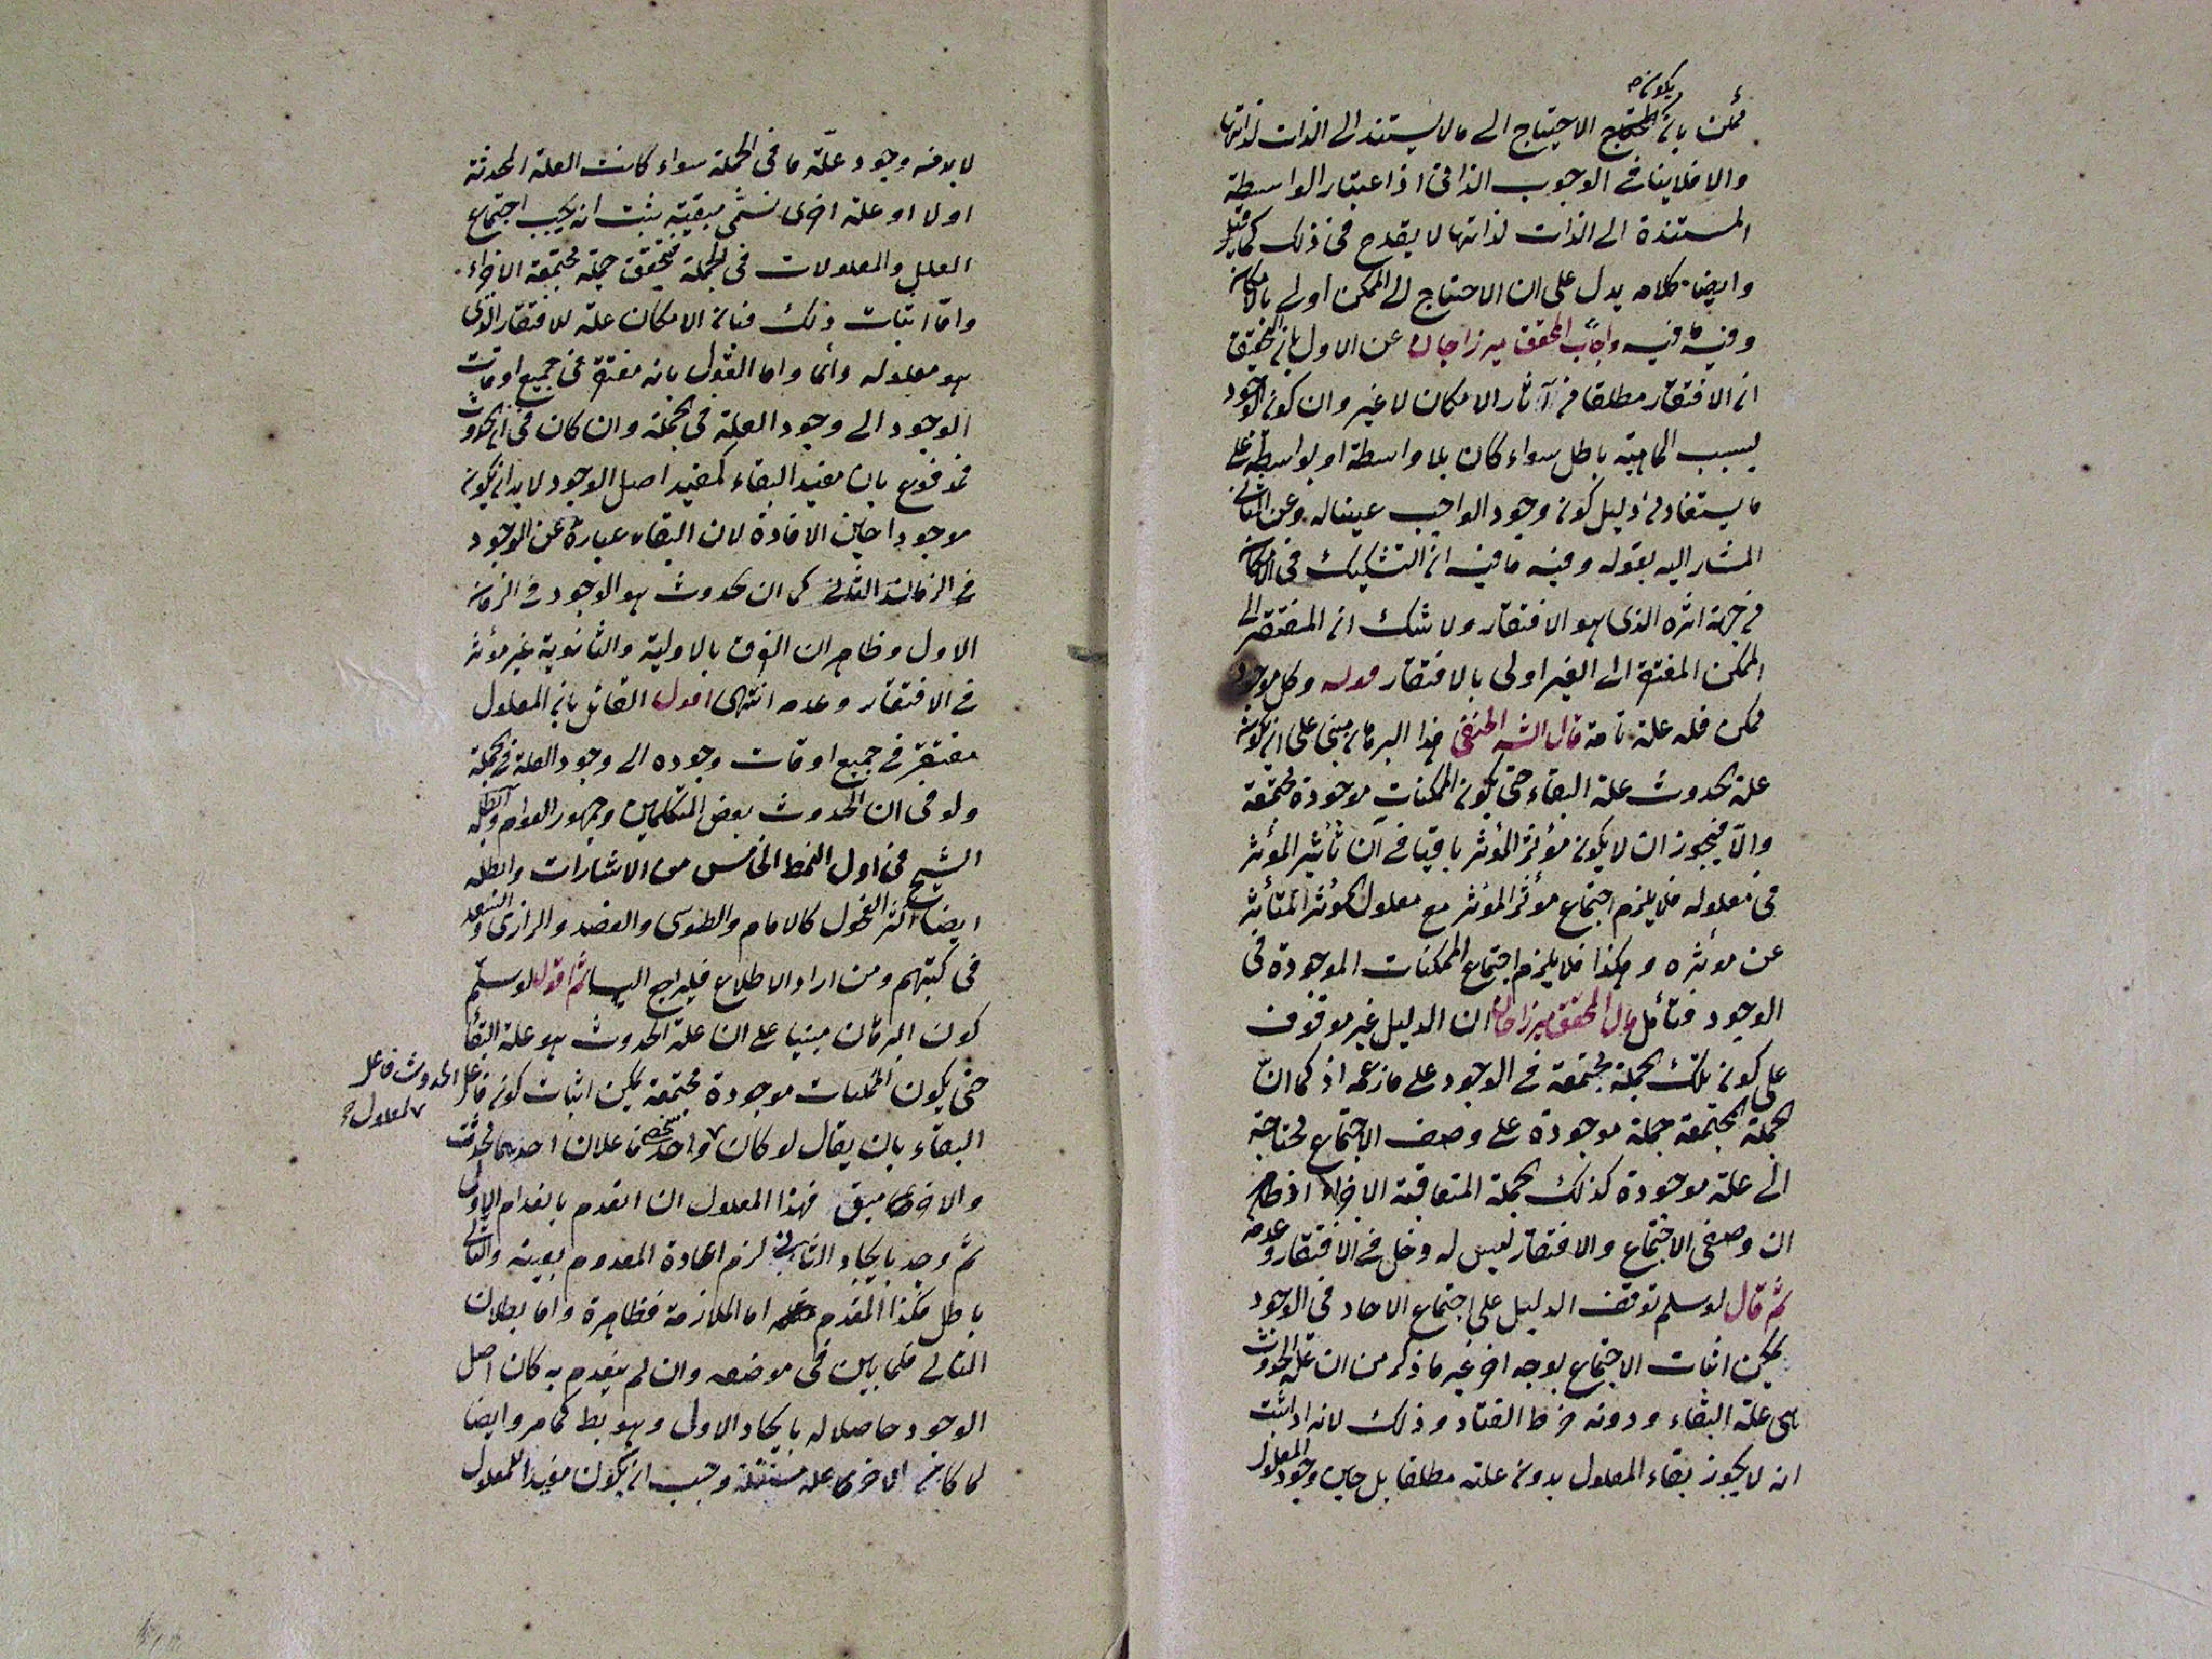 يكون
ممكن بان الاحتياج الى ما لا يستند الى الذات لذاتها
والا فلا ينافى الوجوب الذاتى اذا عتبار الواسطة
المستندة الى الذات لذاتها لا يقدح فى ذلك كما قيل
وايضا كلامه يدل على ان الاحتياج الى الممكن اولى بالامكان
وفيه ما فيه واجاب المحقق ميرزاجان عن الاول بان التحقيق
ان الافتقار مطلقا من آثار الامكان لا غير وان كون الوجود
بسبب الماهية باطل سواء كان بلا واسطة او بواسطة على
ما يستفاد من دليل كون وجود الواجب عيناله وعن الثانى
المشار اليه بقوله وفيه ما فيه ان التشكيك فى الامكان
من جهة اثره الذى هو الافتقار ولا شك ان المفتقر الى
الممكن المفتقر الى الغير اولى بالافتقار قوله وكل موجود
ممكن فله علة تامة قال الشه الحنفى هذا البرهان مبنى على ان يكون
علة الحدوث علة البقاء حتى يكون الممكنات موجودة مجتمعة
والا فيجوز ان لا يكون مؤثر المؤثر باقيا فى آن تأثير المؤثر
فى معلوله فلا يلزم اجتماع مؤثر المؤثر مع معلول المؤثر المتأثر
عن مؤثره وهكذا فلا يلزم اجتماع الممكنات الموجودة فى
الوجود فتأمل قال المحقق ميرزاجان ان الدليل غير موقوف
على كون تلك الجملة مجتمعة فى الوجود على ما زعمه اذ كما ان
الجملة المجتمعة جملة موجودة على وصف الاجتماع محتاجة
الى علة موجودة كذلك الجملة المتعاقبة الاجزاء اذ ظاهر
ان وصفى الاجتماع والافتقار ليس له دخل فى الافتقار وعدمه
ثم قال لو سلم توقف الدليل على اجتماع الاحاد فى الوجود
يمكن اثبات الاجتماع بوجه اخر غير ما ذكر من ان علة الحدوث
هى علة البقاء ودونه خرط القتاد وذلك لانه اذا ثبت
انه لا يجوز بقاء المعلول بدون علته مطلقا بل حين وجود المعلول
لابد منه وجود علة ما فى الجملة سواء كانت العلة المحدثة
اولا او علة اخرى تسمى مبقية يثبت انه يجب اجتماع
العلل والمعلولات فى الجملة فيتحقق جملة مجتمعة الاجزاء
واما اثبات ذلك فبان الامكان علة للافتقار الذى
هو معلوله دائما واما القول بانه مفتقر فى جميع اوقات
الوجود الى وجود العلة فى الجملة وان كان فى آن الحدوث
فمدفوع بان مفيد البقاء كمفيد اصل الوجود لابد ان يكون
موجودا حين الافادة لان البقاء عبارة عن الوجود
فى الزمان الثانى كما ان الحدوث هو الوجود فى الزمان
الاول وظاهر ان الفرق بالاولية والثانوية غير مؤثر
فى الافتقار وعدمه انتهى اقول القائل بان المعلول
مفتقر فى جميع اوقات وجوده الى وجود العلة فى الجملة
ولو فى ان الحدوث بعض المتكلمين وجمهور العوام وابطله
الشيخ فى اول النمط الخامس من الاشارات وابطله
ايضا اكثر الفحول كالامام والطوسى والعضد والرازى والسعد
فى كتبهم ومن اراد الاطلاع فليراجع اليها ثم اقول لو سلم
كون البرهان مبنيا على ان علة الحدوث هو علة البقاء
حتى يكون الممكنات موجودة مجتمعة يمكن اثبات كون فاعل الحدوث فاعل
البقاء بان يقال لو كان لمعلول واحد شخصى فاعلان احدهما محدث
والاخرى مبق فهذا المعلول ان انعدم بانعدام الاول
ثم وجد بايجاد الثانى لزم اعادة المعدوم بعينه والتالى
باطل فكذا المقدم اما الملازمة فظاهرة واما بطلان
التالى فكما بين فى موضعه وان لم ينعدم به كان اصل
الوجود حاصلا له بايجاد الاول وهو بط كما مر وايضا
لما كان الاخرى علة مستقلة وجب ان يكون مفيدا للمعلول